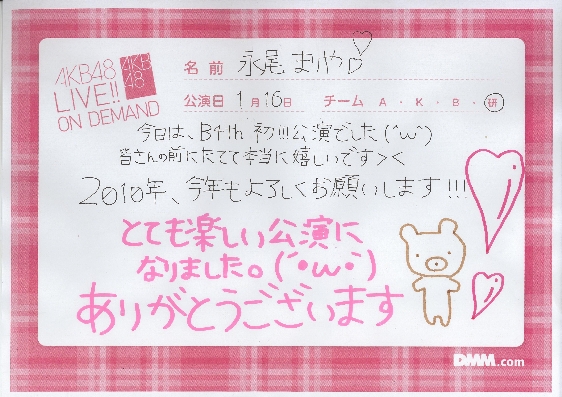 AKB48
LIVE!!
ON DEMAND
AKB
48
名前 永尾 まりや
公演日 1月16日 チーム A・K・B・研
今日は、B4th 初!!!公演でした(´ω`)
皆さんの前にたてて本当に嬉しいです><
2010年、今年もよろしくお願いします!!!
とても楽しい公演に
なりました。(´・ω・`)
ありがとうございます
DMM.com